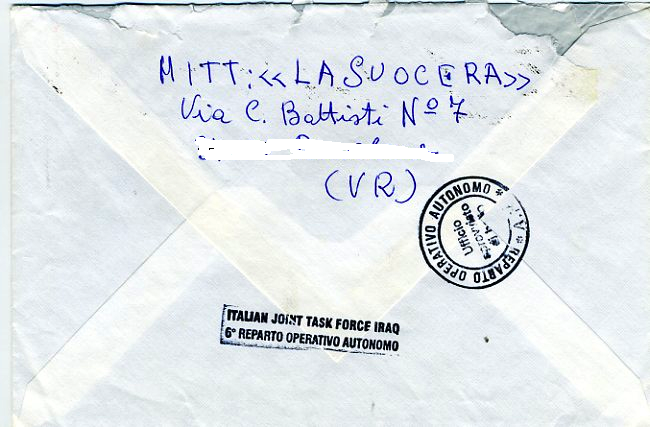 MITT: «LA SUOCERA»
Via C. Battisti Nº 7
(VR)
REPARTO OPERATIVO AUTONOMO
Ufficio
ITALIAN JOINT TASK FORCE IRAQ
6° REPARTO OPERATIVO AUTONOMO